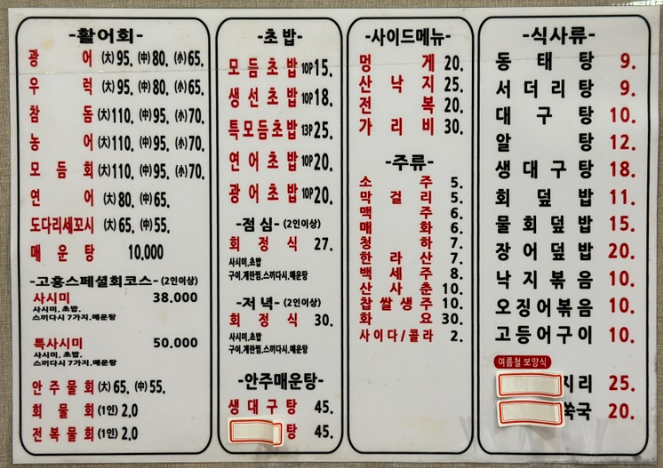 -활어회-
광 어 (大)95, (中)80, (小)65.
우 럭 (大)95, (中)80, (小)65.
참 돔 (大)110, (中)95, (小)70.
농 어 (大)110, (中)95, (小)70.
모 듬 회 (大)110, (中)95, (小)70.
연 어 (大)80, (中)65.
도다리세꼬시 (大)65, (中)55.
매 운 탕 10,000
-고흥스페셜회코스- (2인이상)
사시미 38.000
사시미, 초밥,
스끼다시 7가지,매운탕
특사시미 50.000
사시미, 초밥,
스끼다시 7가지,매운탕
안 주 물 회 (大)65, (中)55.
회 물 회 (1인) 2,0
전 복 물 회 (1인) 2,0
-초 밥-
모 듬 초 밥 10P 15.
생 선 초 밥 10P 18.
특모듬초밥 13P 25.
연 어 초 밥 10P 20.
광 어 초 밥 10P 20.
-점 심- (2인이상)
회 정 식 27.
사시미,초밥
구이,계란찜,스끼다시,매운탕
-저 녁- (2인이상)
회 정 식 30.
사시미,초밥
구이,계란찜,스끼다시,매운탕
-안주매운탕-
생 대 구 탕 45.
탕 45.
-사이드메뉴-
멍 게 20.
산 낙 지 25.
전 복 20.
가 리 비 30.
-주류-
소 주 5.
막 걸 리 5.
맥 주 6.
매 화 6.
청 하 7.
한 라 산 7.
백 세 주 8.
산 사 춘 10.
찹 쌀 생 주 10.
화 요 30.
사이다/콜라 2.
-식사류-
동 태 탕 9.
서 더 리 탕 9.
대 구 탕 10.
알 탕 12.
생 대 구 탕 18.
회 덮 밥 11.
물 회 덮 밥 15.
장 어 덮 밥 20.
낙 지 볶 음 10.
오징어볶음 10.
고등어구이 10.
여름철 보양식
지리 25.
쑥국 20.